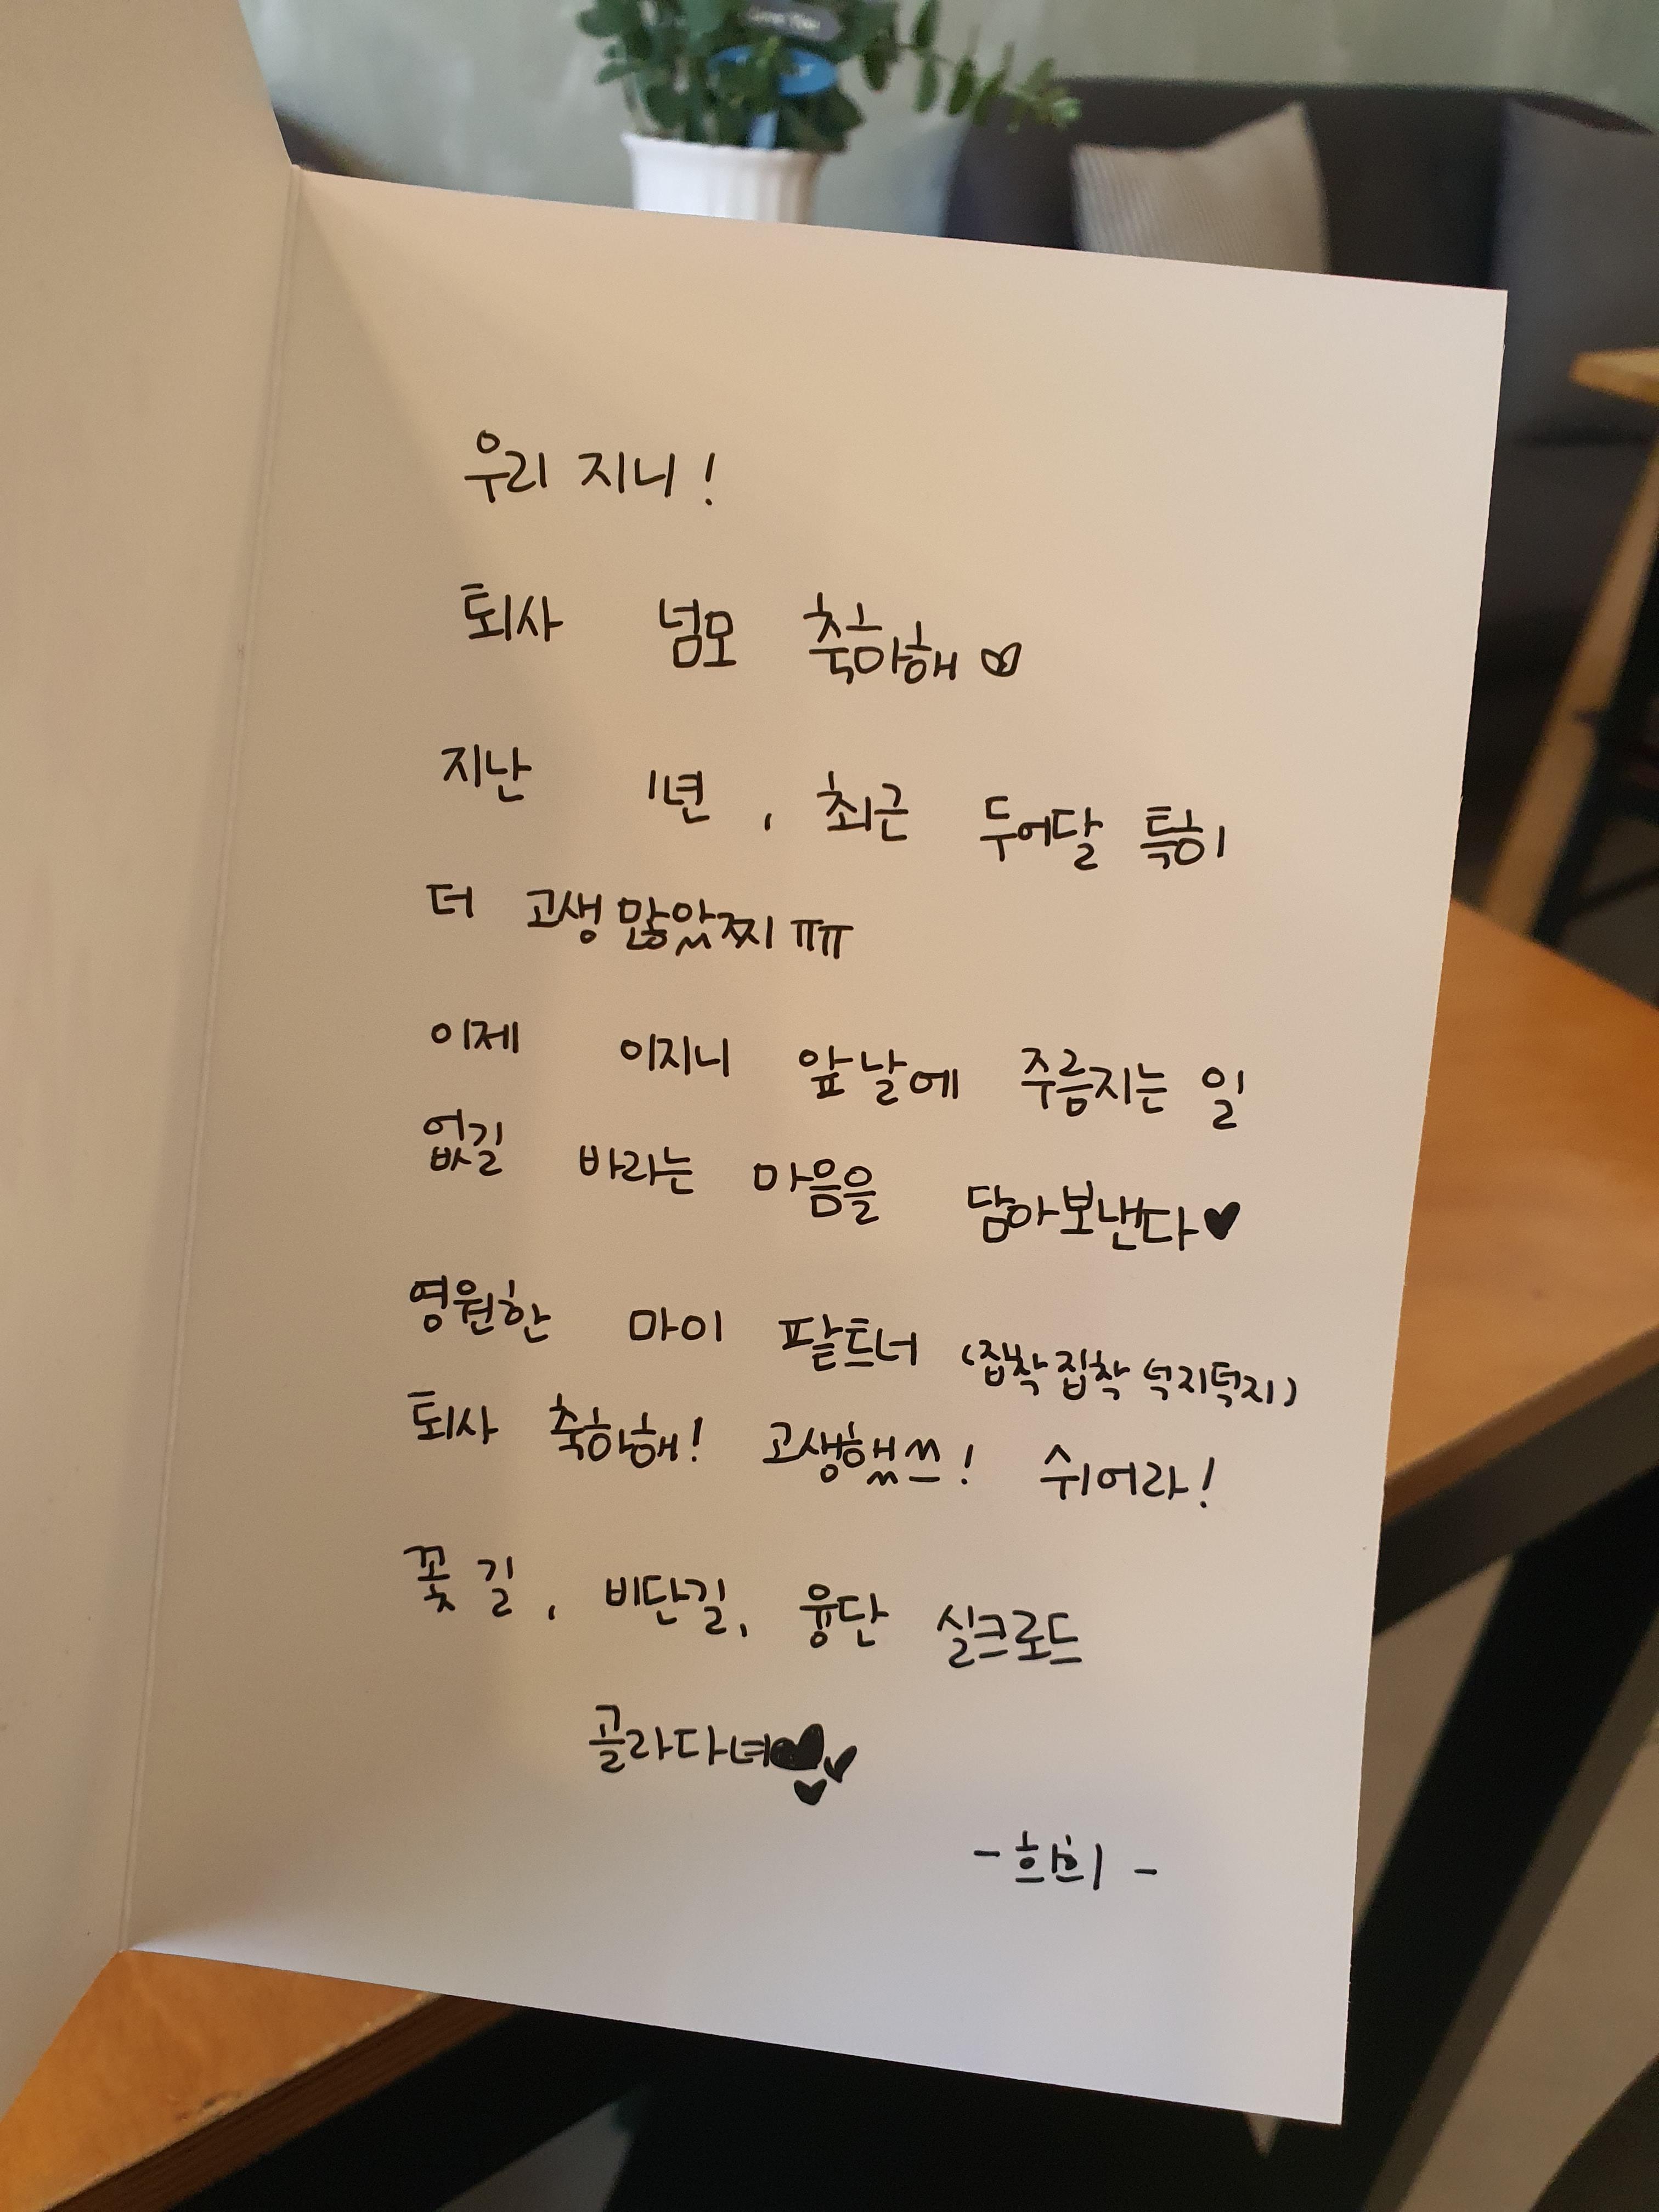 우리 지니!
퇴사 넘모 축하해♡
지난 1년, 최근 두어달 특히
더 고생 많았찌 ㅠㅠ
이제 이지니 앞날에 주름지는 일
없길 바라는 마음을 담아보낸다♥
영원한 마이 팔트너 (집착집착 덕지덕지)
퇴사 축하해! 고생했쓰! 쉬어라!
꽃길, 비단길, 융단 실크로드
골라다녀♥♥♥